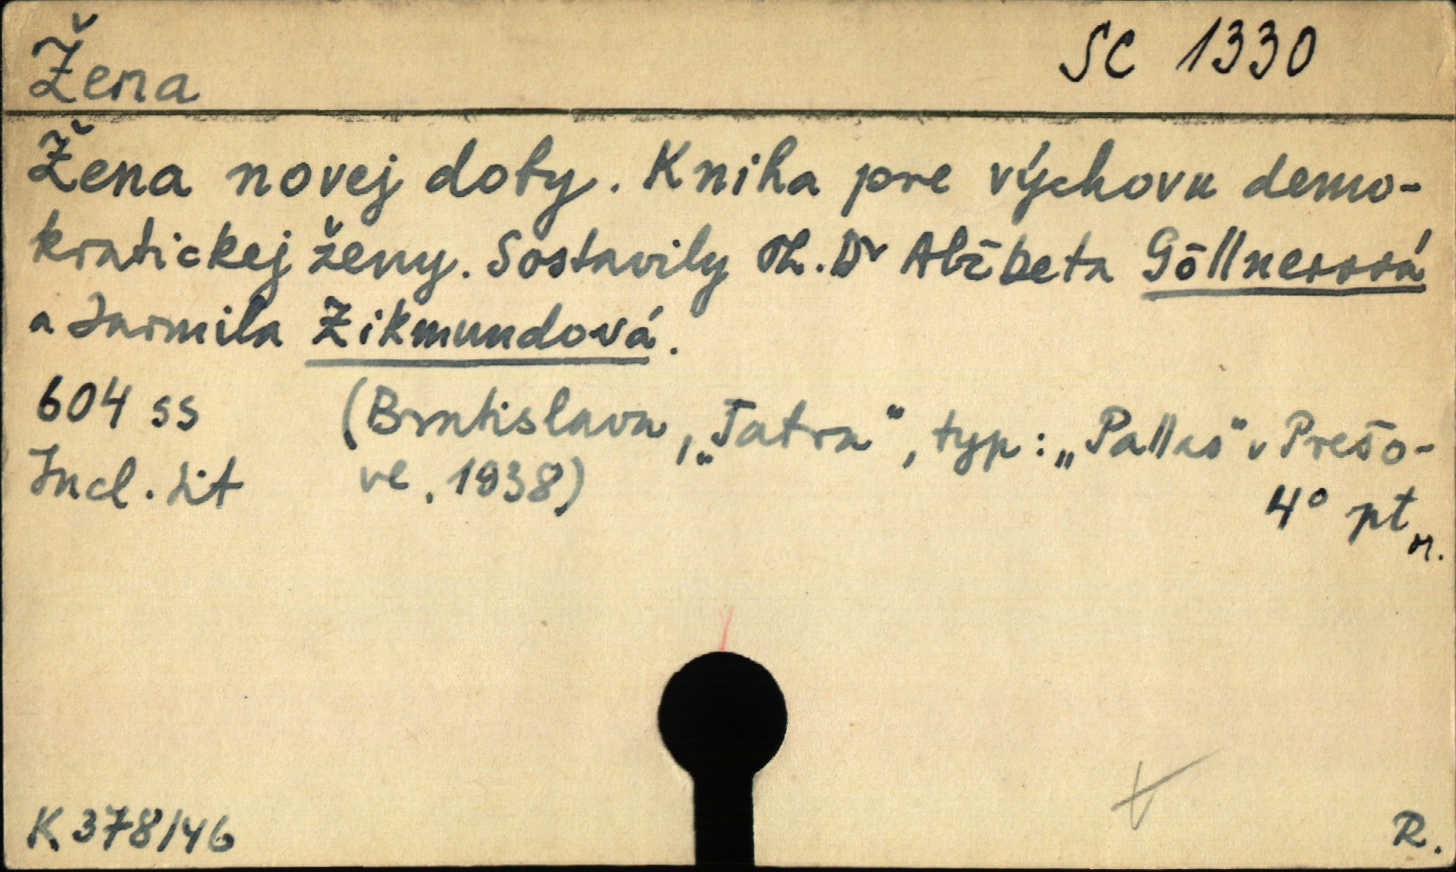 Žena
SC 1330
Žena novej doby. Kniha pre výchovu demo-
kratickej ženy. Sostavily Th. Dr Alžbeta Göllnerová
a Jarmila Zikmundová.
604 ss (Bratislava, „Tatra“, typ: „Pallas“ v Prešo-
Incl. Lit ve, 1938)
4° pt
n.
K 378/46
R.